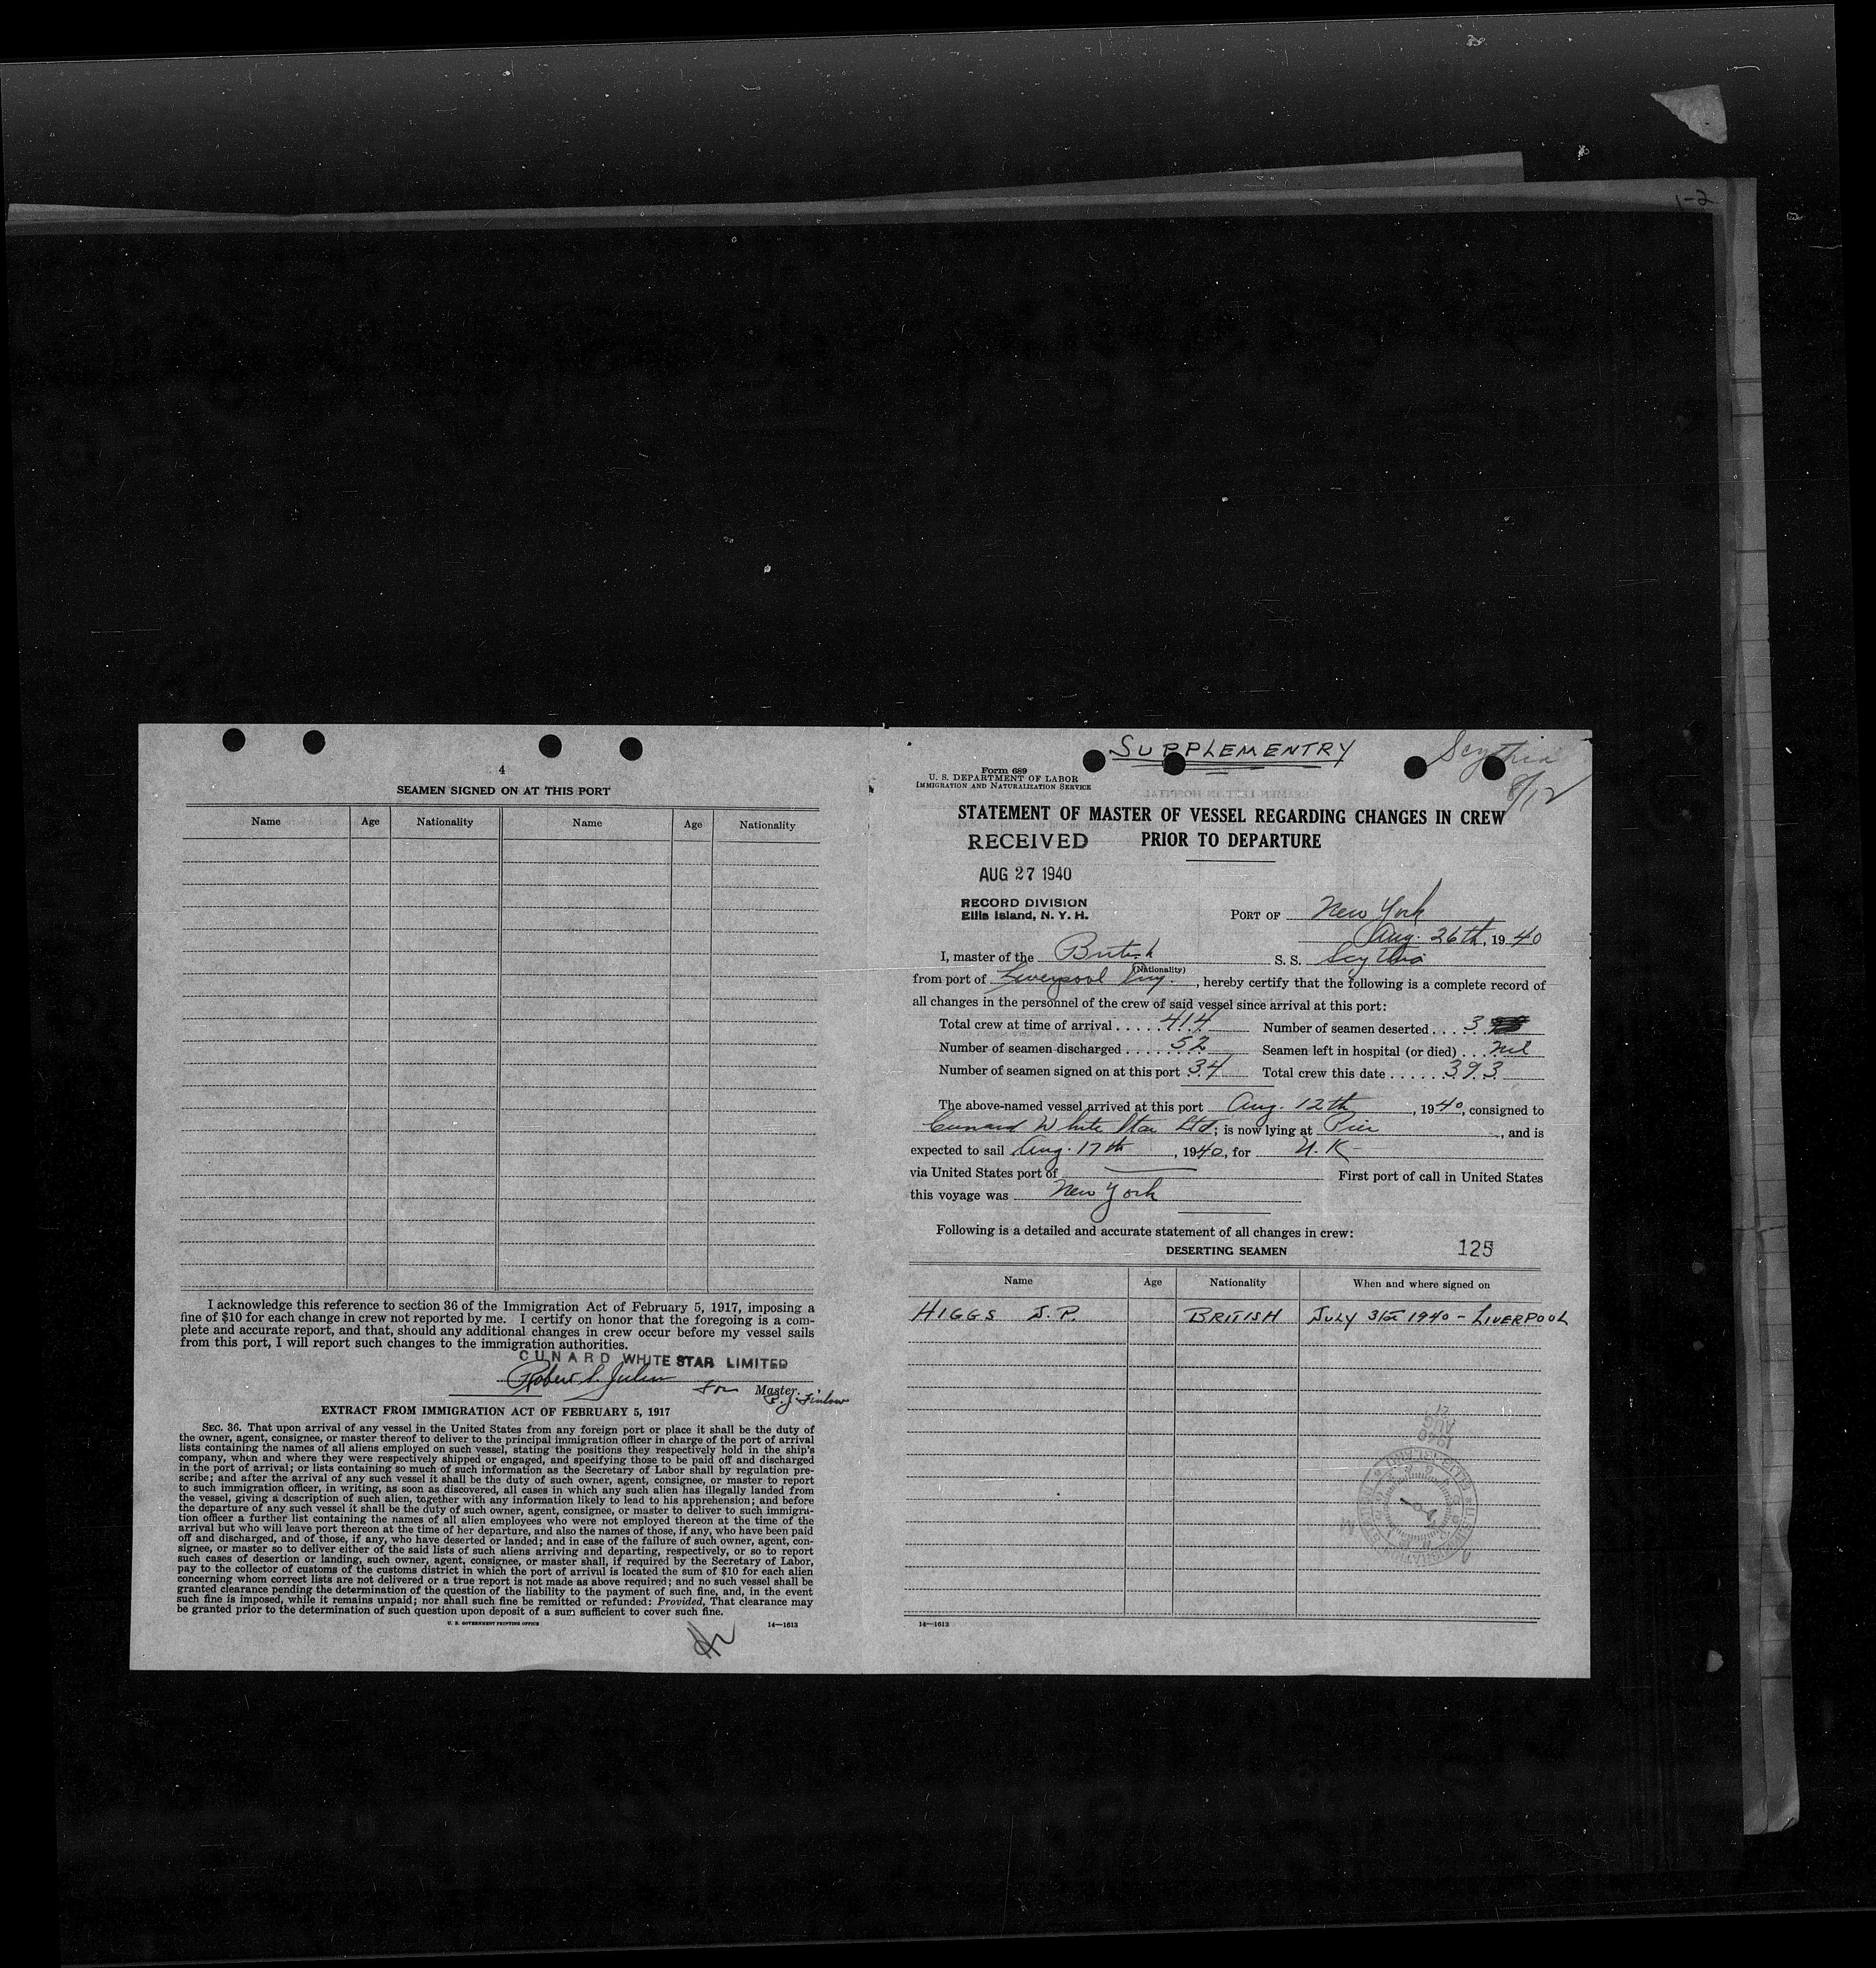 1-2
4
SEAMEN SIGNED ON AT THIS PORT
Name Age Nationality Name Age Nationality
I acknowledge this reference to section 36 of the Immigration Act of February 5, 1917, imposing a
fine of $10 for each change in crew not reported by me. I certify on honor that the foregoing is a com-
plete and accurate report, and that, should any additional changes in crew occur before my vessel sails
from this port, I will report such changes to the immigration authorities.
CUNARD WHITE STAR LIMITED
Robert
for Master.
EXTRACT FROM IMMIGRATION ACT OF FEBRUARY 5, 1917
SEC. 36. That upon arrival of any vessel in the United States from any foreign port or place it shall be the duty of
the owner, agent, consignee, or master thereof to deliver to the principal immigration officer in charge of the port of arrival
lists containing the names of all aliens employed on such vessel, stating the positions they respectively hold in the ship's
company, when and where they were respectively shipped or engaged, and specifying those to be paid off and discharged
in the port of arrival; or lists containing so much of such information as the Secretary of Labor shall by regulation pre-
scribe; and after the arrival of any such vessel it shall be the duty of such owner, agent, consignee, or master to report
to such immigration officer, in writing, as soon as discovered, all cases in which any such alien has illegally landed from
the vessel, giving a description of such alien, together with any information likely to lead to his apprehension; and before
the departure of any such vessel it shall be the duty of such owner, agent, consignee, or master to deliver to such immigra-
tion officer a further list containing the names of all alien employees who were not employed thereon at the time of the
arrival but who will leave port thereon at the time of her departure, and also the names of those, if any, who have been paid
off and discharged, and of those, if any, who have deserted or landed; and in case of the failure of such owner, agent, con-
signee, or master so to deliver either of the said lists of such aliens arriving and departing, respectively, or so to report
such cases of desertion or landing, such owner, agent, consignee, or master shall, if required by the Secretary of Labor,
pay to the collector of customs of the customs district in which the port of arrival is located the sum of $10 for each alien
concerning whom correct lists are not delivered or a true report is not made as above required; and no such vessel shall be
granted clearance pending the determination of the question of the liability to the payment of such fine, and, in the event
such fine is imposed, while it remains unpaid; nor shall such fine be remitted or refunded: Provided, That clearance may
be granted prior to the determination of such question upon deposit of a sum sufficient to cover such fine.
U. S. GOVERNMENT PRINTING OFFICE 14—1613
SUPPLEMENTRY
Scythia
8/12
Form 689
U. S. DEPARTMENT OF LABOR
IMMIGRATION AND NATURALIZATION SERVICE
STATEMENT OF MASTER OF VESSEL REGARDING CHANGES IN CREW
PRIOR TO DEPARTURE
RECEIVED
AUG 27 1940
RECORD DIVISION
Ellis Island, N. Y. H.
PORT OF New York
Aug. 26th, 1940
I, master of the British S. S. Scythia
(Nationality)
from port of Liverpool Eng., hereby certify that the following is a complete record of
all changes in the personnel of the crew of said vessel since arrival at this port:
Total crew at time of arrival . . . . . 414 Number of seamen deserted . . . . 3
Number of seamen discharged . . . . . . 52 Seamen left in hospital (or died) . . . Nil
Number of seamen signed on at this port 34 Total crew this date . . . . . . 393
The above-named vessel arrived at this port Aug. 12th, 1940, consigned to
Cunard White Star Ltd; is now lying at Pier, and is
expected to sail Aug. 17th, 1940, for U.K
via United States port of First port of call in United States
this voyage was New York
Following is a detailed and accurate statement of all changes in crew:
DESERTING SEAMEN 125
Name Age Nationality When and where signed on
HIGGS S.P. BRITISH JULY 31st 1940 - LIVERPOOL
14—1613